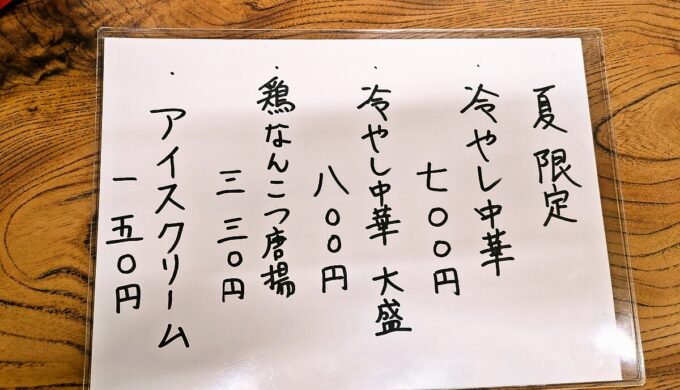 夏限定
・冷やし中華
七〇〇円
・冷やし中華 大盛
八〇〇円
・鶏なんこつ唐揚
三三〇円
・アイスクリーム
一五〇円